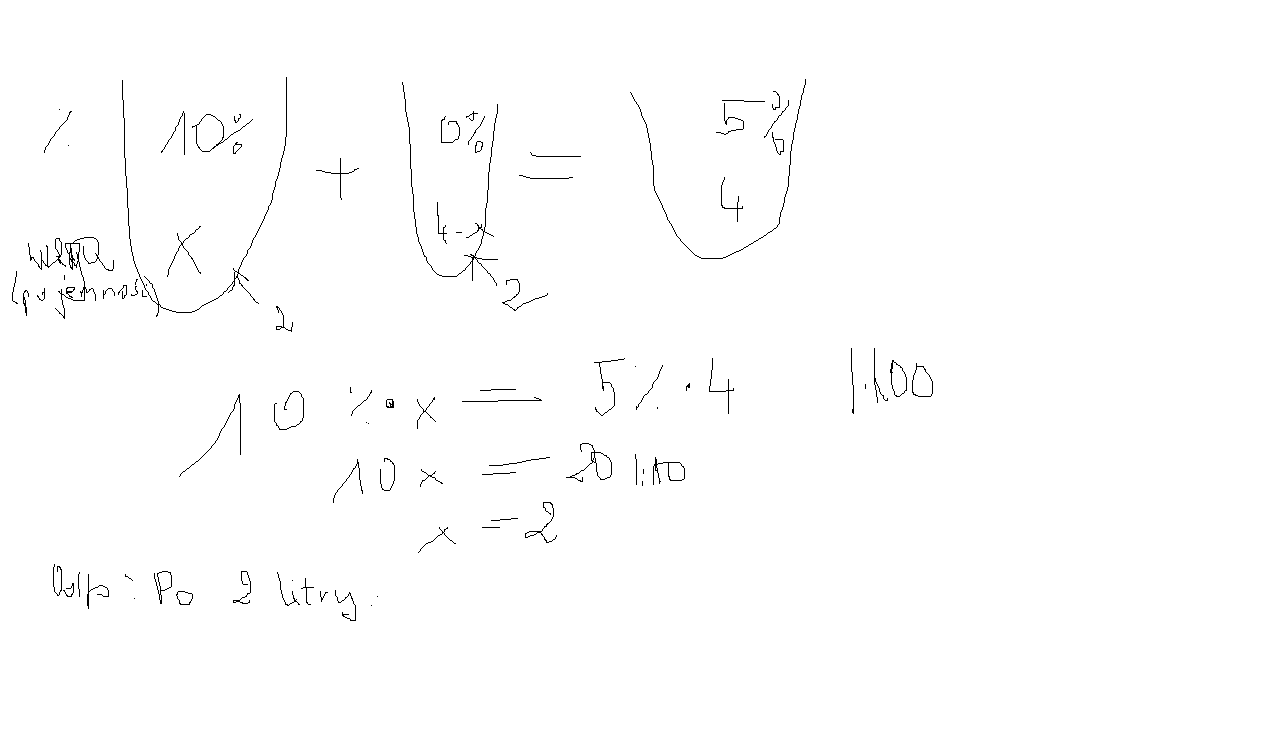 % 10% + 0% = 5%
x 4-x 4
(pojemność)
2 2
10 %·x = 5%·4 |·100
10x = 20 |:10
x = 2
Odp: Po 2 litry.